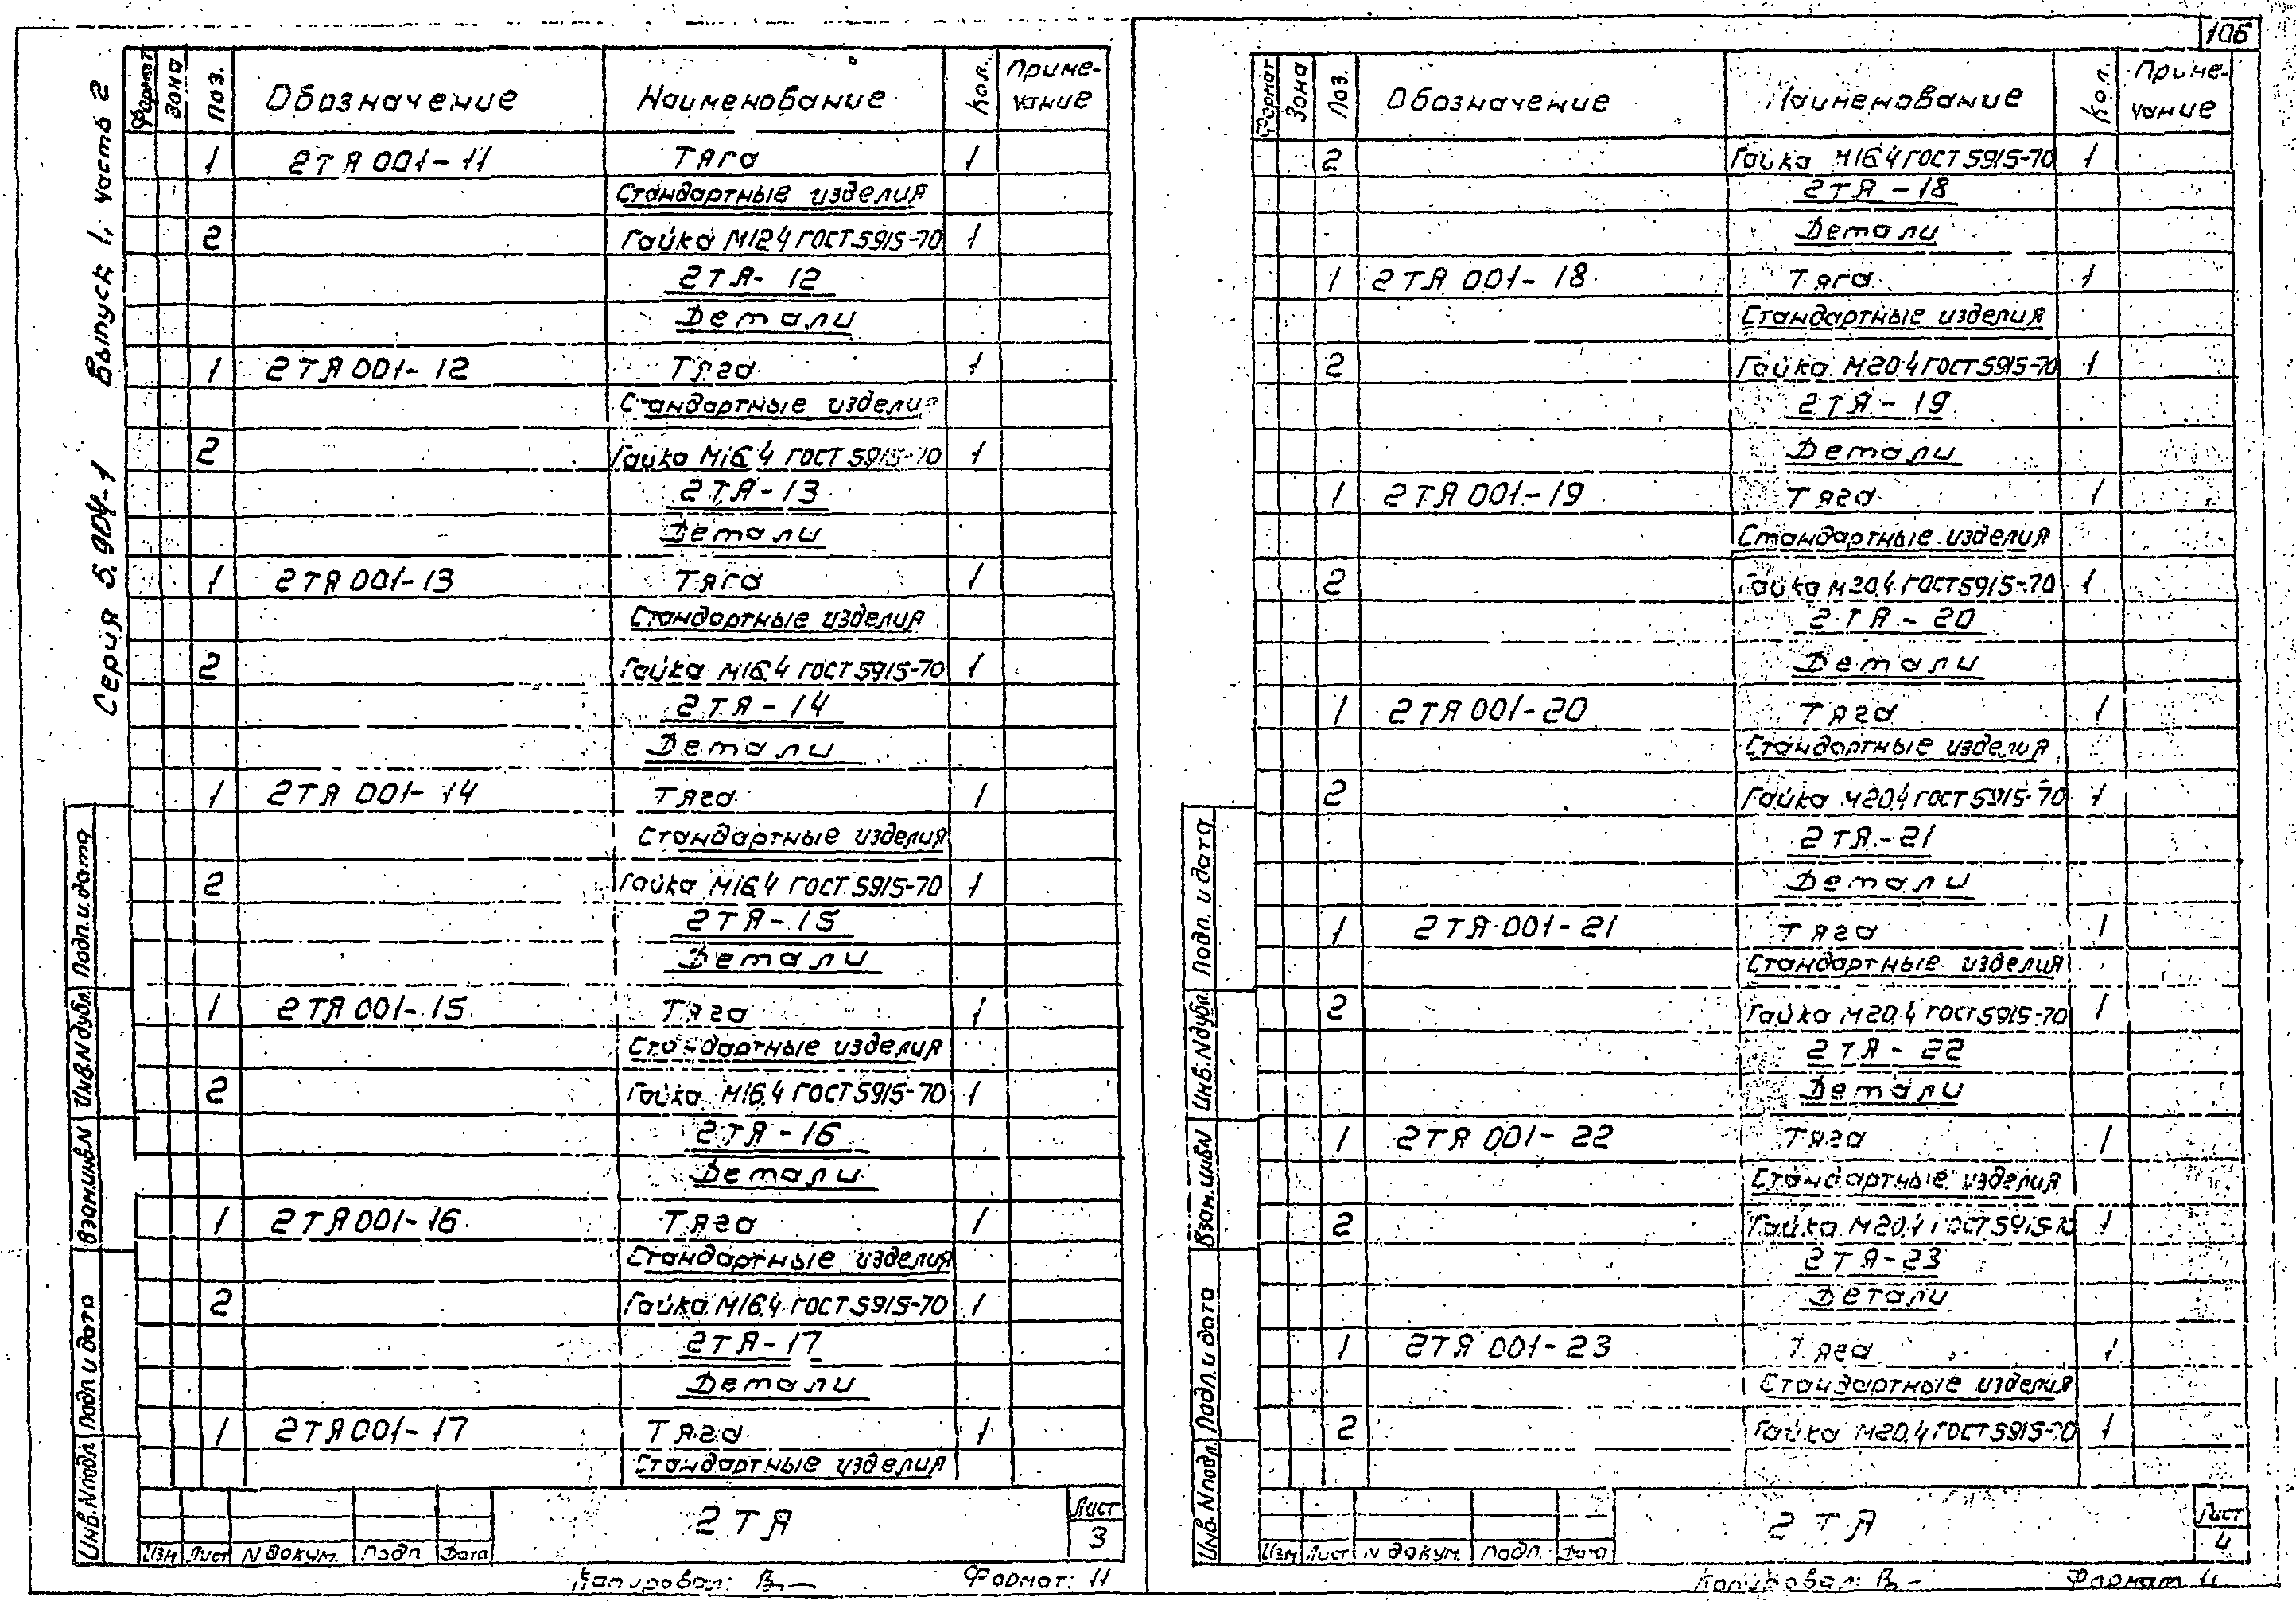 106
Серия 5.904-1 Выпуск 1, часть 2
Формат Зона Поз. Обозначение Наименование Кол. Приме-
чание
1 2ТЯ 001-11 Тяга 1
Стандартные изделия
2 Гайка М12.4 ГОСТ 5915-70 1
2ТЯ-12
Детали
1 2ТЯ 001-12 Тяга 1
Стандартные изделия
2 Гайка М16.4 ГОСТ 5915-70 1
2ТЯ-13
Детали
1 2ТЯ 001-13 Тяга 1
Стандартные изделия
2 Гайка М16.4 ГОСТ 5915-70 1
2ТЯ-14
Детали
1 2ТЯ 001-14 Тяга 1
Стандартные изделия
2 Гайка М16.4 ГОСТ 5915-70 1
2ТЯ-15
Детали
1 2ТЯ 001-15 Тяга 1
Стандартные изделия
2 Гайка М16.4 ГОСТ 5915-70 1
2ТЯ-16
Детали
1 2ТЯ 001-16 Тяга 1
Стандартные изделия
2 Гайка М16.4 ГОСТ 5915-70 1
2ТЯ-17
Детали
1 2ТЯ 001-17 Тяга 1
Стандартные изделия
Инв.Nподл. Подп и дата Взам.инвN Инв.Nдубл. Подп.и.дата
Изм Лист N докум. Подп Дата
2ТЯ
Лист
3
Копировал: Формат: 11
Формат Зона Поз. Обозначение Наименование Кол. Приме-
чание
2 Гайка М16.4 ГОСТ 5915-70 1
2ТЯ-18
Детали
1 2ТЯ 001-18 Тяга 1
Стандартные изделия
2 Гайка М20.4 ГОСТ 5915-70 1
2ТЯ-19
Детали
1 2ТЯ 001-19 Тяга 1
Стандартные изделия
2 Гайка М20.4 ГОСТ 5915-70 1
2ТЯ-20
Детали
1 2ТЯ 001-20 Тяга 1
Стандартные изделия
2 Гайка М20.4 ГОСТ 5915-70 1
2ТЯ-21
Детали
1 2ТЯ 001-21 Тяга 1
Стандартные изделия
2 Гайка М20.4 ГОСТ 5915-70 1
2ТЯ-22
Детали
1 2ТЯ 001-22 Тяга 1
Стандартные изделия
2 Гайка М20.4 ГОСТ 5915-70 1
2ТЯ-23
Детали
1 2ТЯ 001-23 Тяга 1
Стандартные изделия
2 Гайка М20.4 ГОСТ 5915-70 1
Инв.Nподл. Подп.и дата Взам.инвN Инв.Nдубл. Подп. и дата
Изм Лист N докум. Подп. Дата
2ТЯ
Лист
4
Копировал: Формат 11